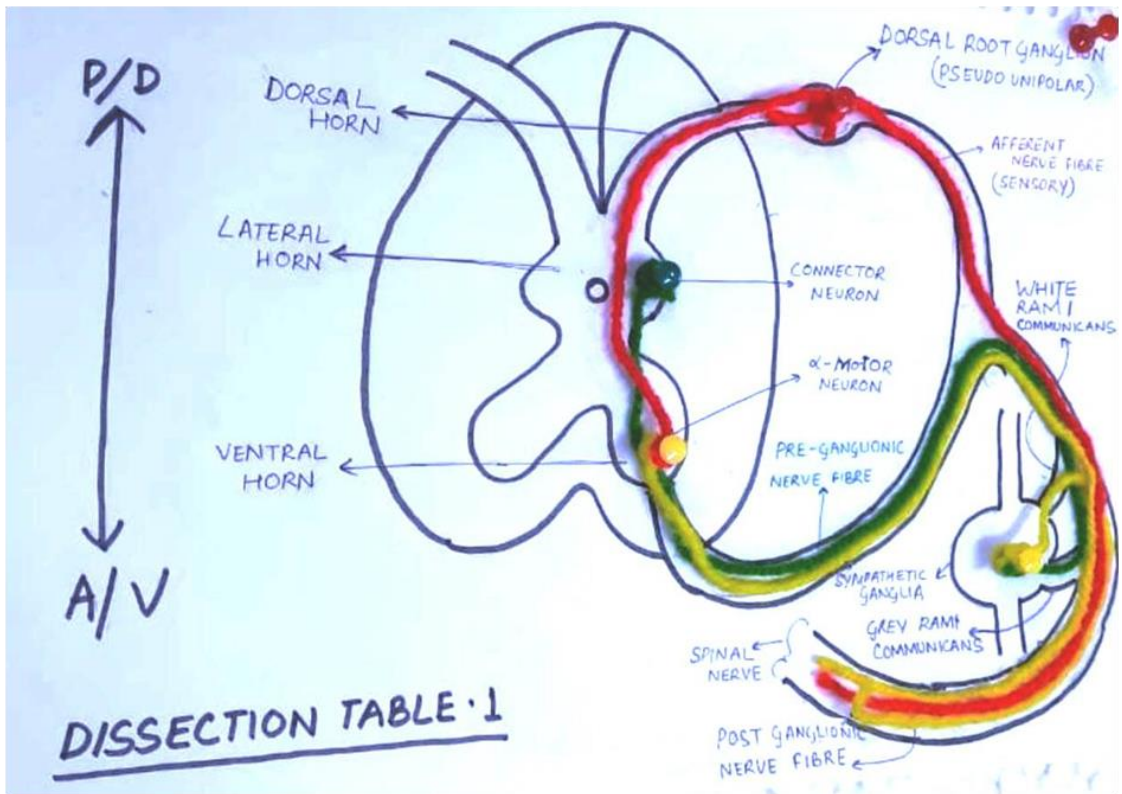 P/D
A/V
DORSAL
HORN
LATERAL
HORN
VENTRAL
HORN
DORSAL ROOT GANGLION
(PSEUDO UNIPOLAR)
AFFERENT
NERVE FIBRE
(SENSORY)
CONNECTOR
NEURON
WHITE
RAMI
COMMUNICANS
α-MOTOR
NEURON
PRE-GANGLIONIC
NERVE FIBRE
SYMPATHETIC
GANGLIA
GREY RAMI
COMMUNICANS
SPINAL
NERVE
POST GANGLIONIC
NERVE FIBRE
DISSECTION TABLE·1